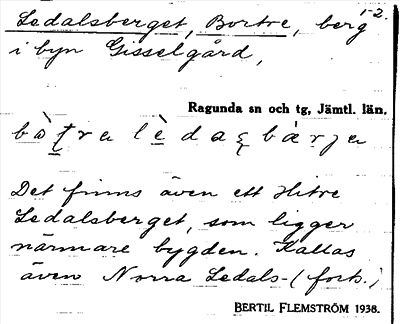 Ledalsberget, Bortre, berg 1-2.
i byn Gisselgård,
Ragunda sn och tg, Jämtl. län.
Det finns även ett Hitre
Ledalsberget, som ligger
närmare bygden. Kallas
även Norra Ledals- (forts.)
BERTIL FLEMSTRÖM 1938.